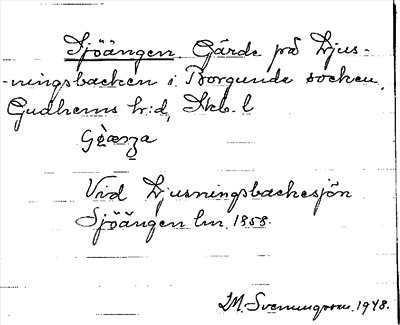 Sjöängen Gärde på Ljus-
-ningsbacken i Borgunda socken,
Gudhems h:d, Skb. l
Vid Ljusningsbackesjön
Sjöängen lm. 1858.
M. Sveningsson. 1948.